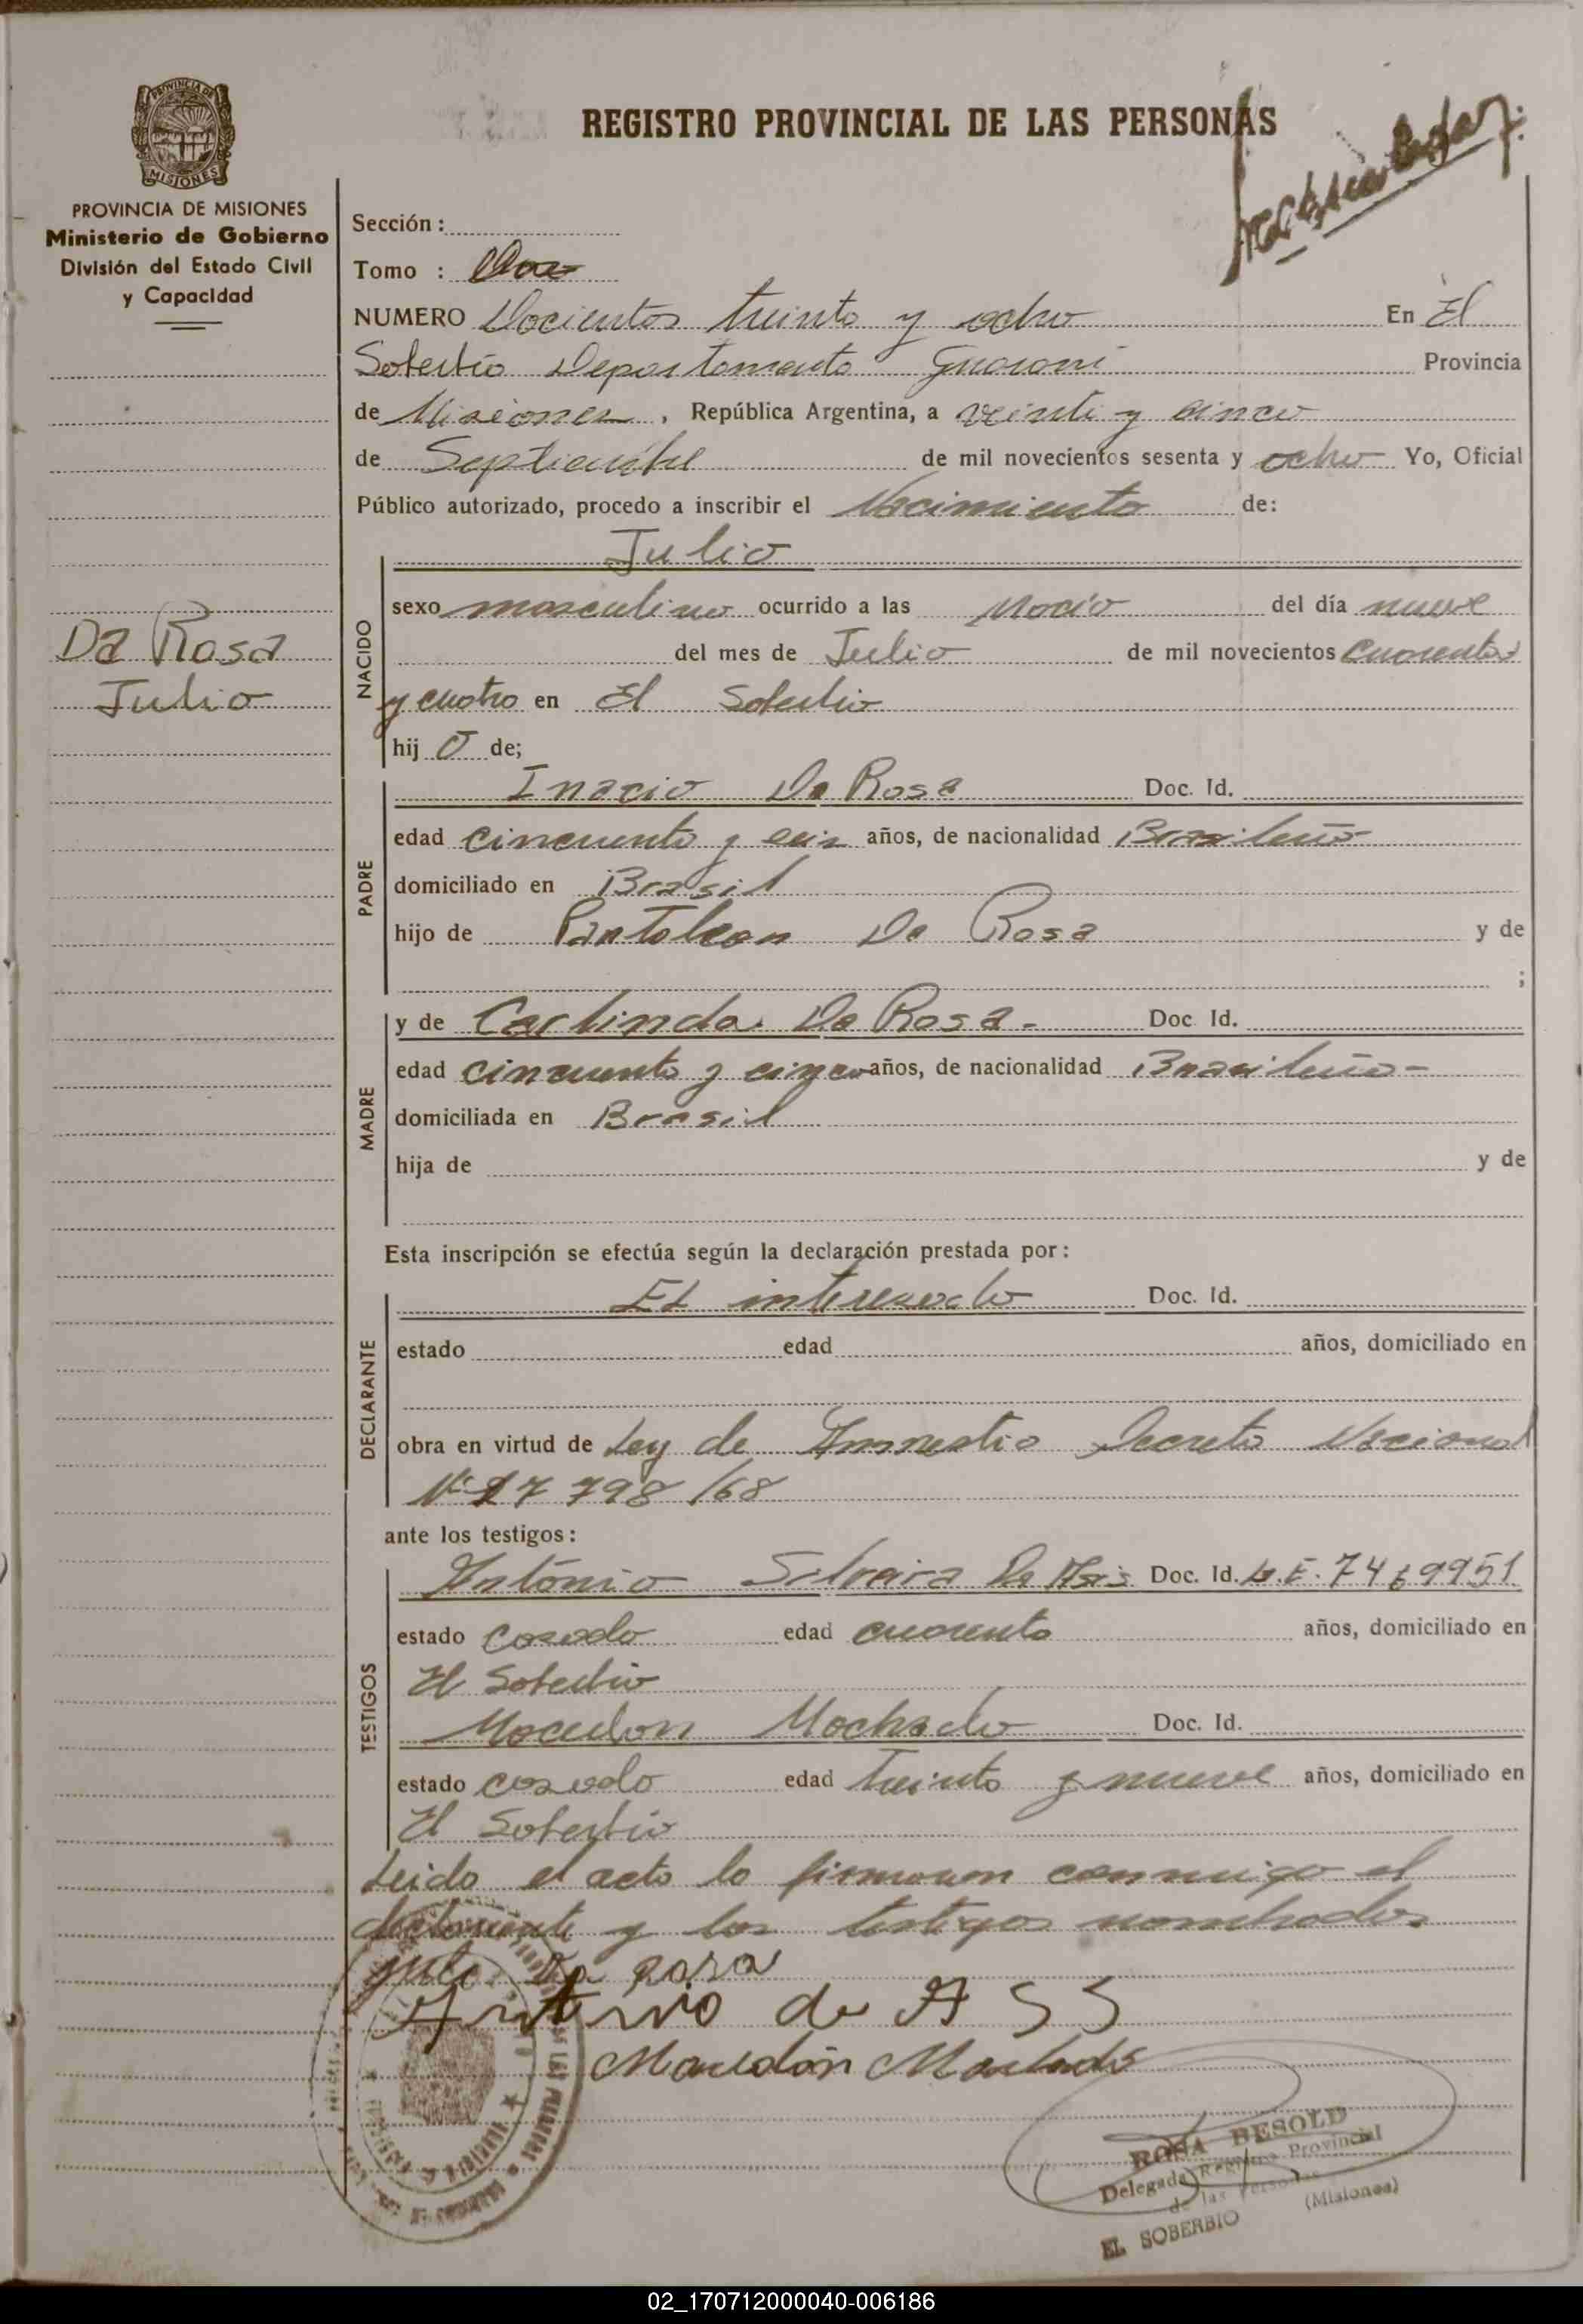 REGISTRO PROVINCIAL DE LAS PERSONAS
PROVINCIA DE
MISIONES
PROVINCIA DE MISIONES
Ministerio de Gobierno
División del Estado Civil
y Capacidad
Da Rosa
Julio
Sección :
Tomo : Dos
NUMERO Docientos treinta y ocho En El
Soberbio Departamento Guarani Provincia
de Misiones, República Argentina, a veinti y cinco
de Septiembre de mil novecientos sesenta y ocho Yo, Oficial
Público autorizado, procedo a inscribir el Nacimiento de:
NACIDO
Julio
sexo masculino ocurrido a las del día nueve
del mes de Julio de mil novecientos cuarenta
y cuatro en El Soberbio
hij o de;
PADRE
Inacio Da Rosa Doc. Id.
edad cincuenta y seis años, de nacionalidad Brasileño
domiciliado en Brasil
hijo de Pantaleon Da Rosa y de
;
MADRE
y de Carlinda Da Rosa - Doc Id.
edad cincuenta y cinco años, de nacionalidad Brasileña -
domiciliada en Brasil
hija de y de
Esta inscripción se efectúa según la declaración prestada por :
DECLARANTE
El interesado Doc. Id.
estado edad años, domiciliado en
obra en virtud de Ley de Amnestia Decreto Nacional
Nº 17 798/68
ante los testigos :
TESTIGOS
António Silveira De Asis Doc. Id. L.E. 7469951
estado casado edad cuarenta años, domiciliado en
El Soberbio
Macedon Machado Doc. Id.
estado casado edad treinta y nueve años, domiciliado en
El Soberbio
Leido el acta lo firmaron conmigo el
declarante y los testigos nombrados
julio Da rosa
Antonio de A S S
Macedón Machado
ROSA BESOLD
Delegada Registro Provincial
de las Personas
EL SOBERBIO (Misiones)
02_170712000040-006186